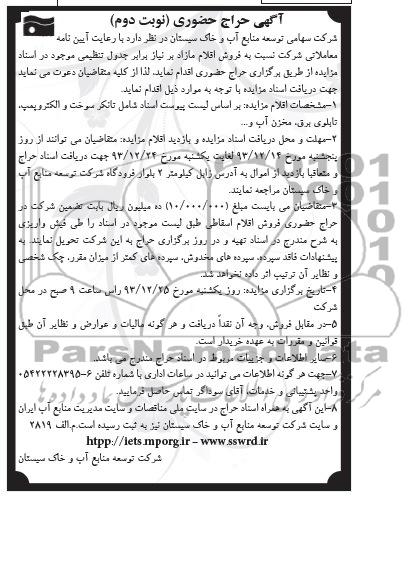 آگهی حراج حضوری (نوبت دوم)
شرکت سهامی توسعه منابع آب و خاک سیستان در نظر دارد با رعایت آیین نامه
معاملاتی شرکت نسبت به فروش اقلام مازاد بر نیاز برابر جدول تنظیمی موجود در اسناد
مزایده از طریق برگزاری حراج حضوری اقدام نماید. لذا از کلیه متقاضیان دعوت می نماید
جهت دریافت اسناد مزایده با توجه به موارد ذیل اقدام نماید.
۱-مشخصات اقلام مزایده: بر اساس لیست پیوست اسناد شامل تانکر سوخت و الکتروپمپ،
تابلوی برق، مخزن آب و...
۲-مهلت و محل دریافت اسناد مزایده و بازدید اقلام مزایده: متقاضیان می توانند از روز
پنجشنبه مورخ ۹۳/۱۲/۱۴ لغایت یکشنبه مورخ ۹۳/۱۲/۲۴ جهت دریافت اسناد حراج
و متعاقبا بازدید از اموال به آدرس زابل کیلومتر ۲ بلوار فرودگاه شرکت توسعه منابع آب
و خاک سیستان مراجعه نمایند.
۳-متقاضیان می بایست مبلغ (۱۰/۰۰۰/۰۰۰) ده میلیون ریال بابت تضمین شرکت در
حراج حضوری فروش اقلام اسقاطی طبق لیست موجود در اسناد را طی فیش واریزی
به شرح مندرج در اسناد تهیه و در روز برگزاری حراج به این شرکت تحویل نمایند. به
پیشنهادات فاقد سپرده، سپرده های مخدوش، سپرده های کمتر از میزان مقرر، چک شخصی
و نظایر آن ترتیب اثر داده نخواهد شد.
۴-تاریخ برگزاری مزایده: روز یکشنبه مورخ ۹۳/۱۲/۲۵ راس ساعت ۹ صبح در محل
شرکت
۵-در مقابل فروش، وجه آن نقداً دریافت و هر گونه مالیات و عوارض و نظایر آن طبق
قوانین و مقررات به عهده خریدار است.
۶-سایر اطلاعات و جزییات مربوط در اسناد حراج مندرج می باشد.
۷-جهت هر گونه اطلاعات می توانید در ساعات اداری با شماره تلفن ۶-۰۵۴۲۲۲۲۸۳۹۵
واحد پشتیبانی و خدمات، آقای سوداگر تماس حاصل فرمایید.
۸-این آگهی به همراه اسناد حراج در سایت ملی مناقصات و سایت مدیریت منابع آب ایران
و سایت شرکت توسعه منابع آب و خاک سیستان نیز به ثبت رسیده است.م.الف ۲۸۱۹
htpp://iets.mporg.ir – www.sswrd.ir
شرکت توسعه منابع آب و خاک سیستان